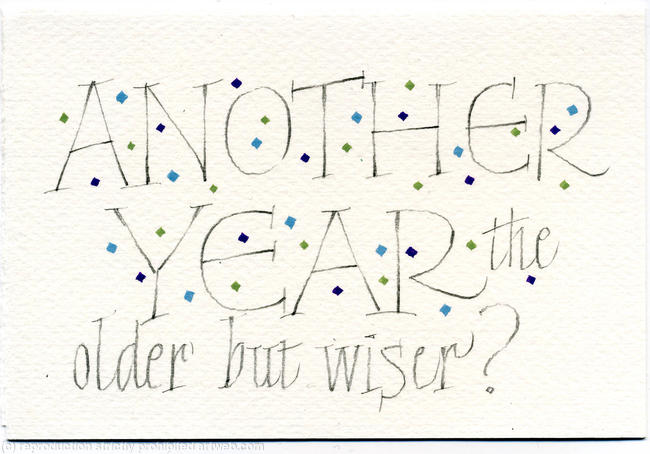 ANOTHER
YEAR the
older but wiser?
(c) reproduction strictly prohibited artweb.com